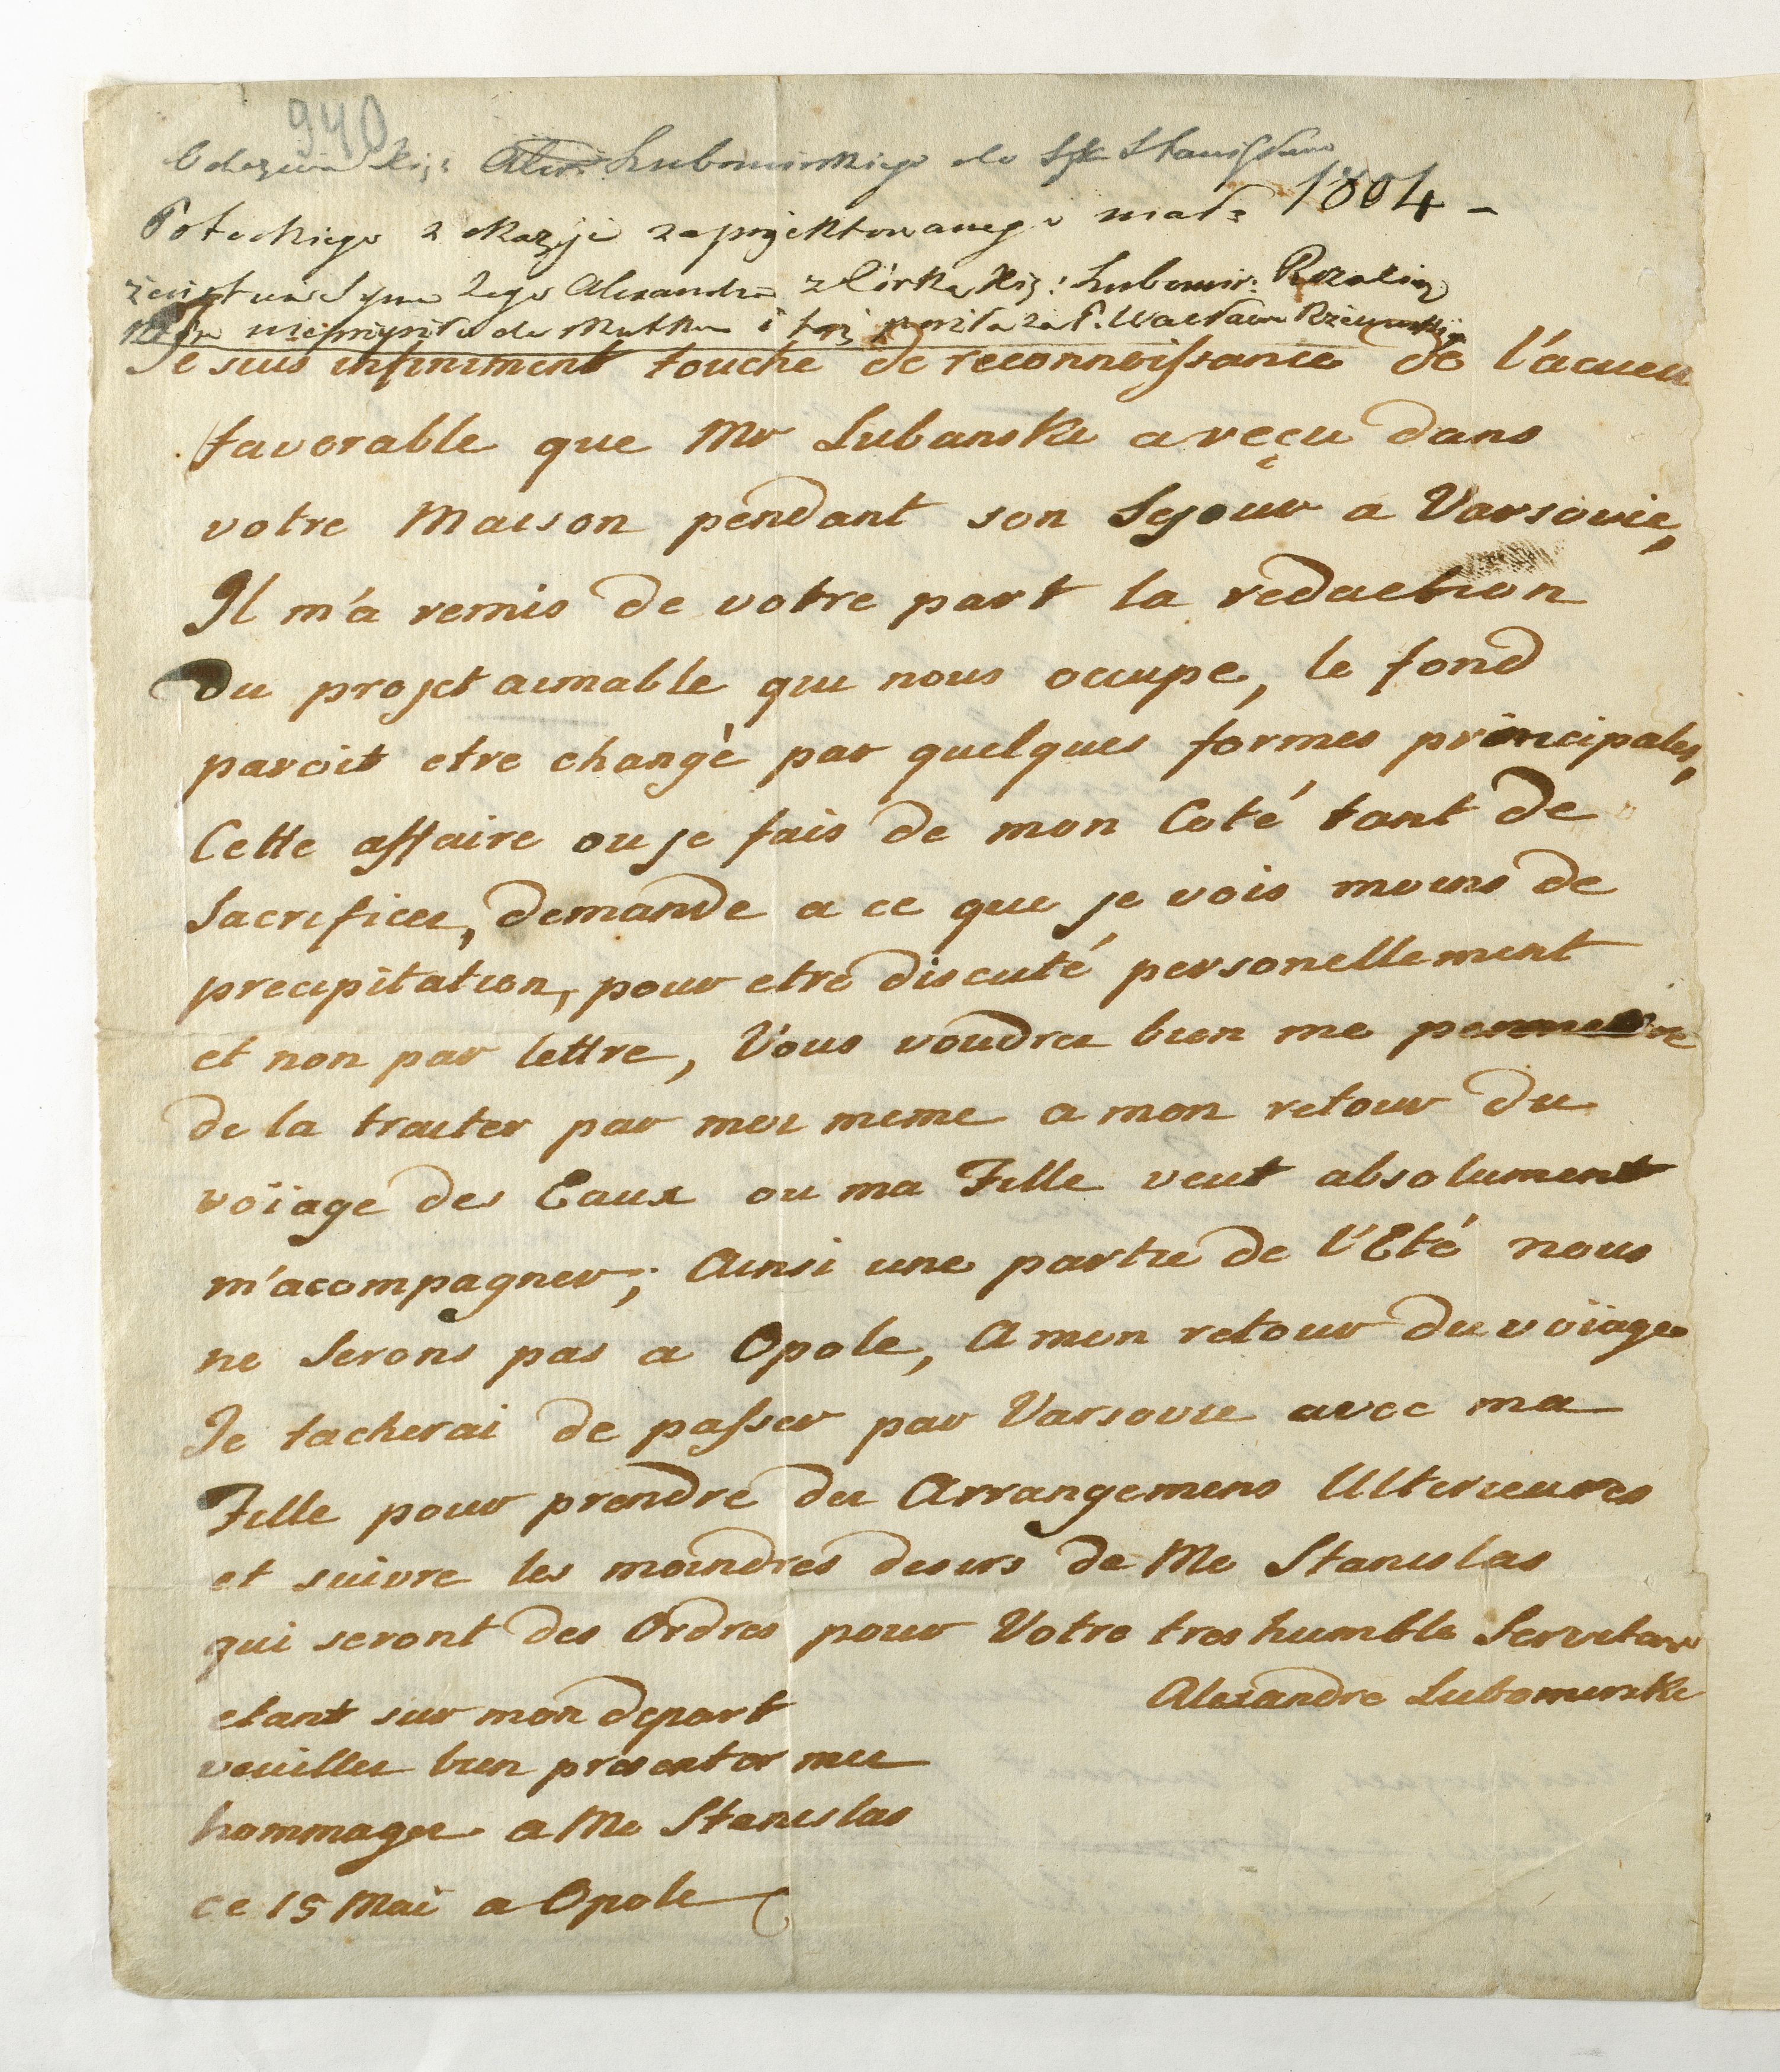 940
Odezwa Xię: Alex: Lubomirskiego do Stanisława
Potockiego z okazyi zaprojektowanego mał: 1804 -
żeństwa Syna Jego Alexandra z Córką Xię: Lubomir: Rozalią
nie przyszło do skutku i poszła za P. Wacława Rzewuskiego
Je suis infiniment touché de reconnoissance de l'acueil
favorable que Mr Lubanski a reçu dans
votre Maison pendant son Sejour a Varsovie,
Il m'a remis de votre part la redaction
du projet aimable qui nous occupe, le fond
paroit etre changè par quelques formes principales,
Cette affaire ou je fais de mon Coté tant de
Sacrifices, demande a ce que je vois moins de
precipitation, pour etre discuté personellement
et non par lettre, Vous voudrez bien me permettre
de la traiter par moi meme a mon retour du
voïage des Eaux ou ma Fille veut absolument
m'acompagner; Ainsi une partie de l'Eté nous
ne Serons pas a Opole, A mon retour du voïage
Je tacherai de passer par Varsovie avec ma
Fille pour prendre des Arrangemens Ulterieures
et suivre les moindres desirs de Me Stanislas
qui seront des Ordres pour Votre tres humble Serviteur
Alexandre Lubomirski
etant sur mon depart
veuillez bien presenter mes
hommages a Me Stanislas
ce 15 Mai a Opole